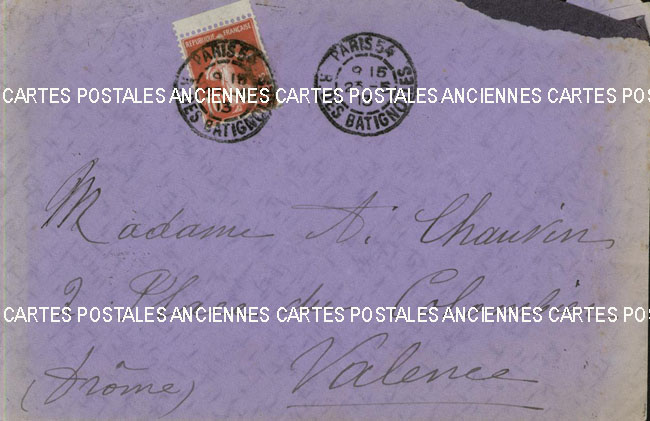 REPUBLIQUE FRANÇAISE
PARIS 54
9 15
15
R. DES BATIGNOLLES
PARIS 54
9 15
R. DES BATIGNOLLES
CARTES POSTALES ANCIENNES CARTES POSTALES ANCIENNES CARTES POS
Madame A. Chauvin
2 Place du Colombier
CARTES POSTALES ANCIENNES CARTES POSTALES ANCIENNES CARTES POS
(Drôme) Valence